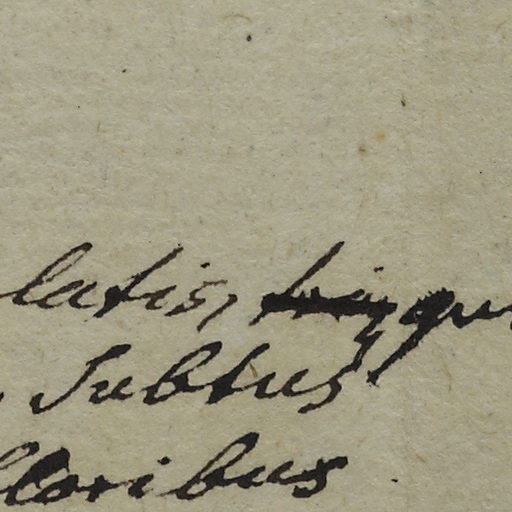 latis,
subtus
floribus